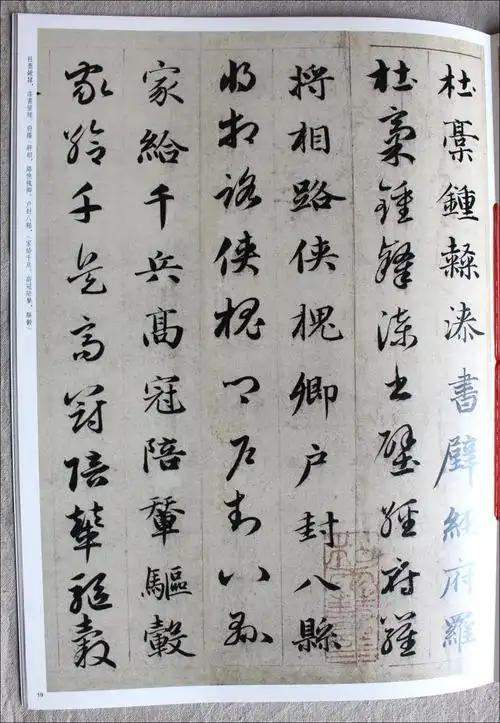 杜稾鍾隸漆書壁經府羅
杜稾鍾隸漆書壁經府羅
將相路俠槐卿户封八縣
將相路俠槐卿户封八縣
家給千兵高冠陪輦驅轂
家給千兵高冠陪輦驅轂
杜稾鍾隸，漆書壁經。府羅將相，路俠槐卿。户封八縣，家給千兵。高冠陪輦，驅轂
19